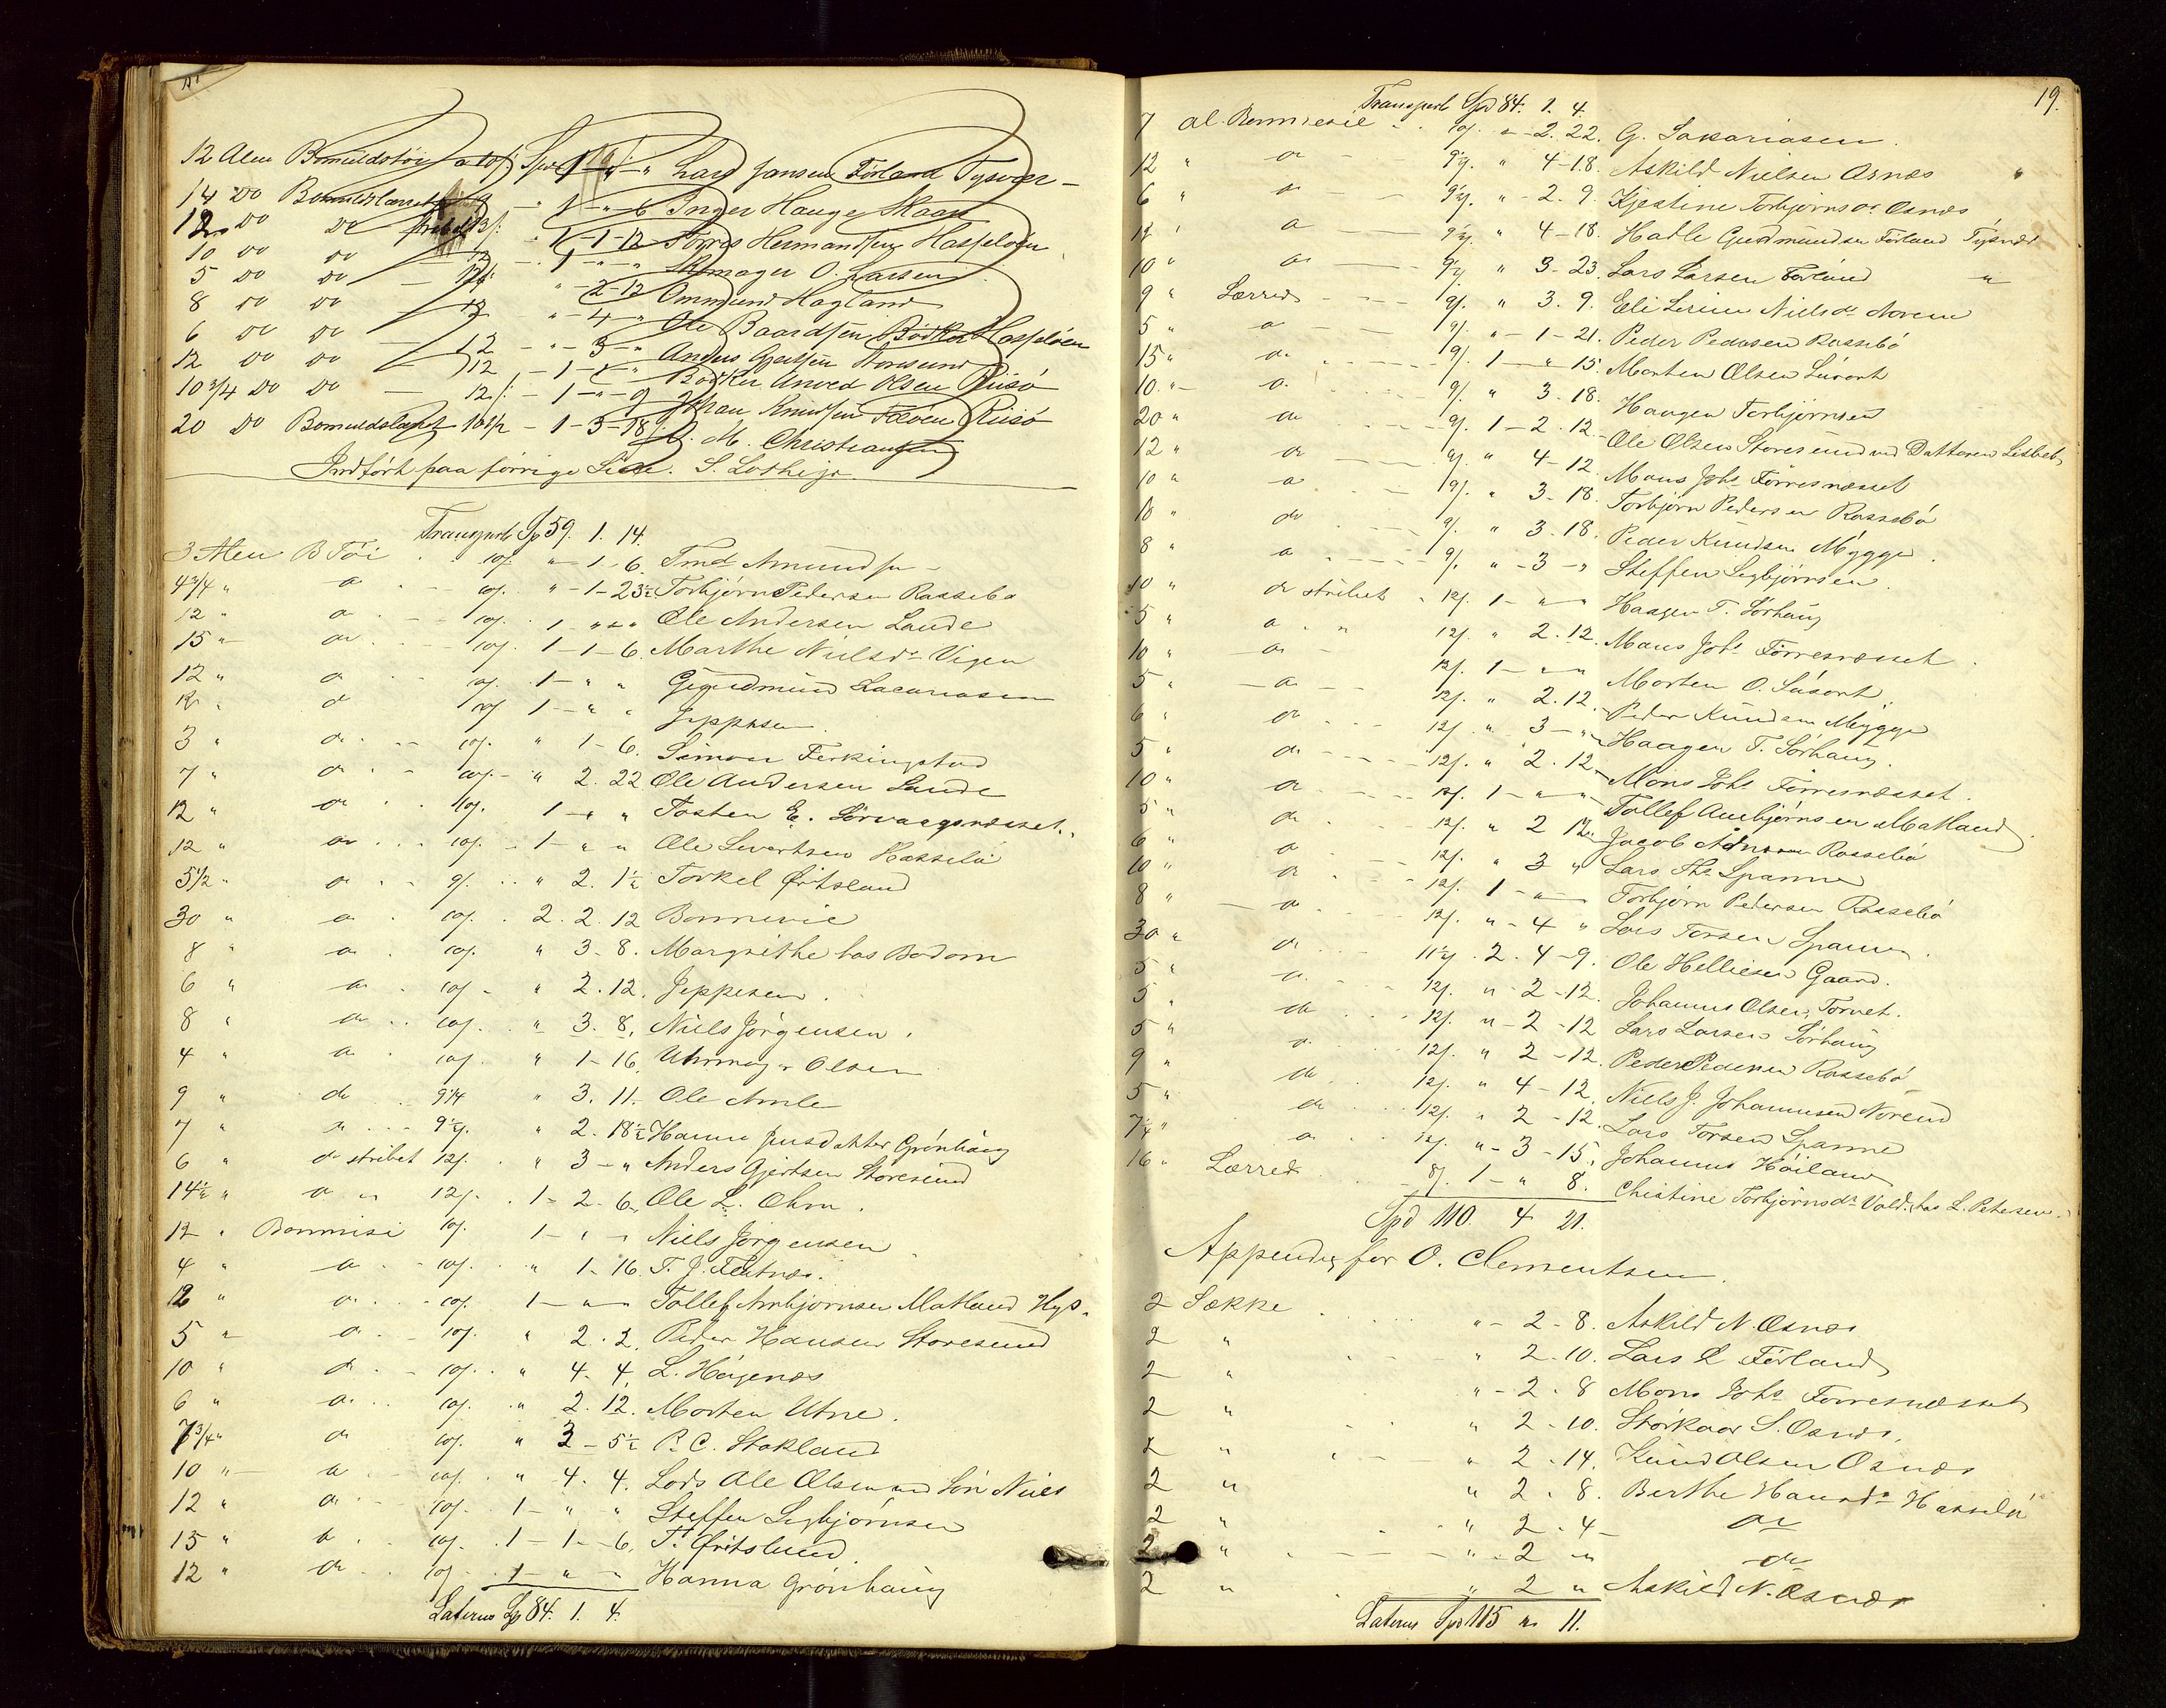 12 Alen Bomuldstöi a 10/: Spd 1 - " - " Lars Jansen Förland Tysvær -
14 do Bomuldslærret - 1 - " - 6 Inger Hauge Skaar
18 do do stribet 13/: - 1 - 1 - 12 Törres Hermandsen Hasselöen
10 do do - 12 - 1 - " - " Skomager O. Larsen
5 do do - 12/: " - 2 - 12 Ommund Hagland
8 do do - 12 " - 4 - " Ole Baardsen Bödker Hasselöen
6 do do - 12 - " - 3 - " Anders Gjertsen Storesund
12 do do - 12 - 1 - 1 - " Bödker Anved Olsen Riisö
10 3/4 do do - 12/: - 1 - " - 9 Johan Knudsen Riisö
20 do Bomuldslærret 10 1/2 - 1 - 3 - 18 M. Christiansen
Indfört paa forrige Side. S. Lothejo
Transport Sp 59. 1. 14.
3 Alen B Töi 10/. " - 1 - 6. Tmd Amundsen -
4 3/4 " do 10/. " - 1 - 23 1/2 Torbjörn Pedersen Rassebö
12 " do 10/. 1 " " Ole Andersen Lande
15 " do 10/. 1 - 1 - 6. Marthe Nielsdr Vigen
12 " do 10/. 1 - " " Gudmund Zacariasen
12 " do 10/. 1 - " " Jeppesen
3 " do 10/. " 1 - 6. Simon Ferkingstad
7 " do 10/. - " 2. 22 Ole Andersen Lande
12 " do 10/. 1 - " " Tosten E. Sörvaagsnæsset.
12 " do 10/. - 1 - " " Ole Sivertsen Hasselö
5 1/2 " do 9/. " 2. 1 1/2 Torkel Öritsland
30 " do 10/. 2. 2. 12 Bonnevie
8 " do 10/. " 3. 8. Margrethe hos Bodom
6 " do 10/. " 2. 12. Jeppesen.
8 " do 10/. " 3. 8. Niels Jörgensen.
4 " do 10/. " 1 - 16. Uhrmag. Olsen
9 " do 9 1/4 " 3. 11. Ole Amle
7 " do 9 1/2/. " 2. 18 1/2 Hanne Jensdatter Grönhaug
6 " do stribet 12/. " 3 - " Anders Gjertsen Storesund
14 1/2 " do " 12/. 1 - 2 - 6. Ole L. Ohm.
12 " Bonmisi 10/. 1 - " - " Niels Jörgensen
4 " do 10/. " 1 - 16. T. J. Feitnæs.
12 " do 10/. 1 - " - Tollef Anbjörnsen Matland Hgs.
5 " do 10/. " 2. 2. Peder Hansen Storesund
10 " do 10/. " 4. 4. L. Högenæs
6 " do 10/. " 2. 12. Morten Utne.
7 3/4 " do 10/. " 3 - 5 1/2 P. C. Stokland
10 " do 10/. " 4. 4. Lods Ole Olsen ved Sön Niels
12 " do 10/. 1 - " " Steffen Sigbjörnsen
15 " do 10/. 1 - 1 - 6. T. Öritsland.
12 " do 10/. 1 - " " Hanna Grönhaug
Laterus Sp 84. 1. 4.
19.
Transport Spd 84. 1. 4.
7 al. Bonmesie 10/. " - 2. 22. G. Sakariasen.
12 " do 9 1/2/. " 4 - 18. Askild Nielsen Osnæs "
6 " do 9 1/2/. " - 2. 9. Kjestine Torbjörnsdr Osnæs
12 " do 9 1/2/. " 4 - 18. Hatle Gudmundsen Förland Tysvær
10 " do 9 1/2/. " 3 - 23. Lars Larsen Förland "
9 " Lærred 9/. " 3. 9. Eli Serine Nielsdr Norem
5 " do 9/. " - 1 - 21. Peder Pedersen Rassebö
15 " do 9/. 1 - " 15. Morten Olsen Susort
10 " do 9/. " 3. 18. Haagen Torbjörnsen
20 " do 9/. 1 - 2. 12. Ole Olsen Storesund ved Datteren Lisbet
12 " do 9/. " 4 - 12. Mons Johs Förresnæsset
10 " do 9/. " 3 - 18. Torbjörn Pedersen Rassebö
10 " do 9/. " 3 - 18. Peder Knudsen Mygge.
8 " do 9/. " - 3 - " Steffen Sigbjörnsen.
10 " do stribet 12/. 1 - " - " Haagen T. Sörhaug
5 " do " 12/. " 2. 12. Mons Johs Förresnæsset.
10 " do 12/. 1 - " - " Morten O. Susort
5 " do 12/. " 2. 12. Peder Knudsen Mygge
6 " do 12/. " 3 - " Haagen T. Sörhaug.
5 " do 12/. " 2. 12. Mons Johs Förresnæsset.
10 " do 12/. 1 - " - " Tollef Anebjörnsen Matland.
5 " do 12/. " 2 12. Jacob Rassebö
6 " do 12/. " 3 " Lars Ths Spanne
10 " do 12/. 1 - " - Torbjörn Pedersen Rassebö
8 " do 12/. " - 4 " Lars Torsen Spanne.
30 " do 11 1/2/. 2. 4 - 9. Ole Helliesen Gaard.
5 " do 12/. " - 2 - 12. Johannes Olsen Torvet.
5 " do 12/. " - 2 - 12 Lars Larsen Sörhaug
5 " do 12/. " 2 - 12. Peder Pedersen Rassebö
9 " do 12/. " 4 - 12. Niels J. Johannesen Norem
5 " do 12/. " 2 - 12. Lars Torsen Spanne
7 1/4 " do 12/. " - 3 - 15. Johannes Höiland
16 " Lærred 8/. 1 - " 8. Christine Torbjörnsdr Vold. hos L. Petersen.
Spd 110. 4 21.
Appendix for O. Clementsen.
2 Sække " - 2 - 8. Askild N. Osnæs
2 " " 2 - 10. Lars L Förland
2 " " - 2 - 8 Mons Johs Förresnæsset
2 " " 2 - 10. Storkaar S. Osnæs.
2 " " 2 - 14. Knud Olsen Osnæs
2 " " 2 - 8. Berthe Hansdr Hasselö
2 " " 2 - 4 - do
2 " " - 2 " do
2 " " 2 " Askild N. Osnæs
Laterus Spd 115 " 11.